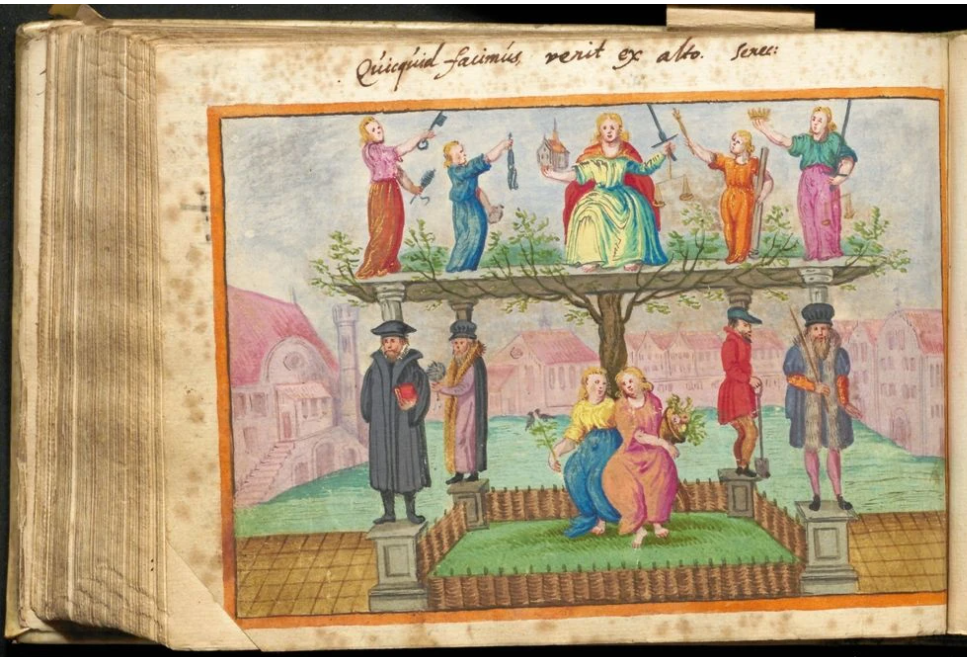 Quicquid facimus, venit ex alto. Senec: